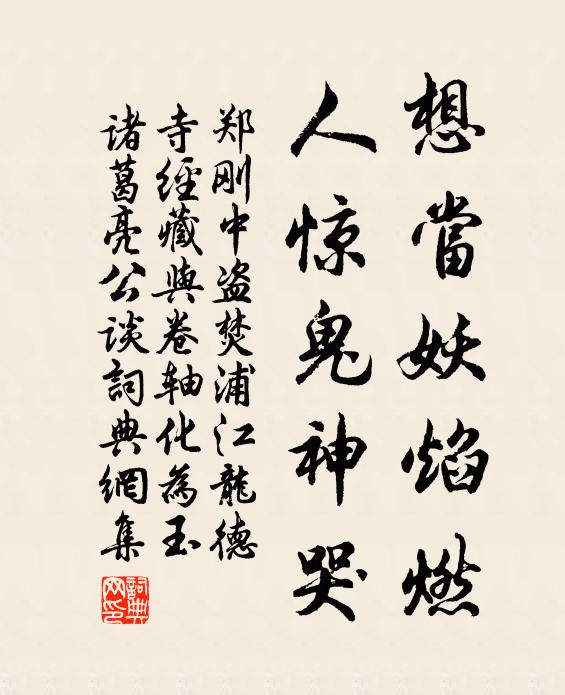 想當妖焰燃
人惊鬼神哭
郑刚中盗焚浦江龍德
寺經藏與卷轴化為玉
诸葛亮公谈詞典網集
詞典
网印